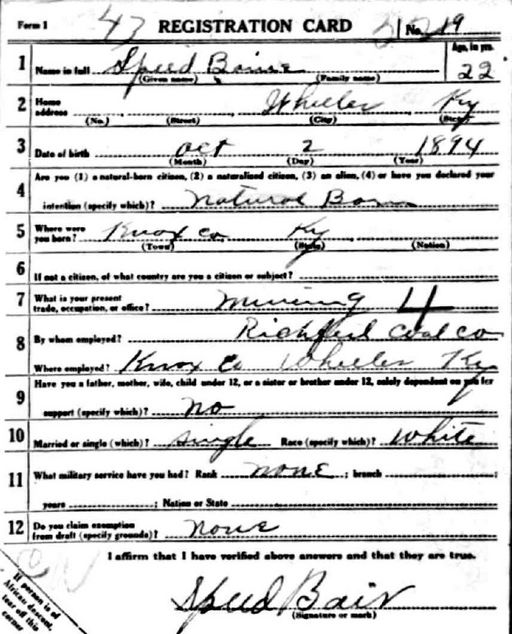 Form 1 47 REGISTRATION CARD No. 19
1 Name in full Speed Age, in yrs. 22
(Given name) (Family name)
2 Home address Wheeler Ky
(No.) (Street) (City) (State)
3 Date of birth Oct 2 1894
(Month) (Day) (Year)
4 Are you (1) a natural-born citizen, (2) a naturalized citizen, (3) an alien, (4) or have you declared your
intention (specify which)? Natural Born
5 Where were you born? Knox Co Ky
(Town) (State) (Nation)
6 If not a citizen, of what country are you a citizen or subject?
7 What is your present trade, occupation, or office? Mining 4
8 By whom employed? Coal Co
Where employed? Knox Co Wheeler Ky
9 Have you a father, mother, wife, child under 12, or a sister or brother under 12, solely dependent on you for
support (specify which)? No
10 Married or single (which)? Single Race (specify which)? White
11 What military service have you had? Rank none ; branch ;
years ; Nation or State
12 Do you claim exemption from draft (specify grounds)? None
I affirm that I have verified above answers and that they are true.
Speed Bair
(Signature or mark)
If person is of
African descent,
tear off this
corner